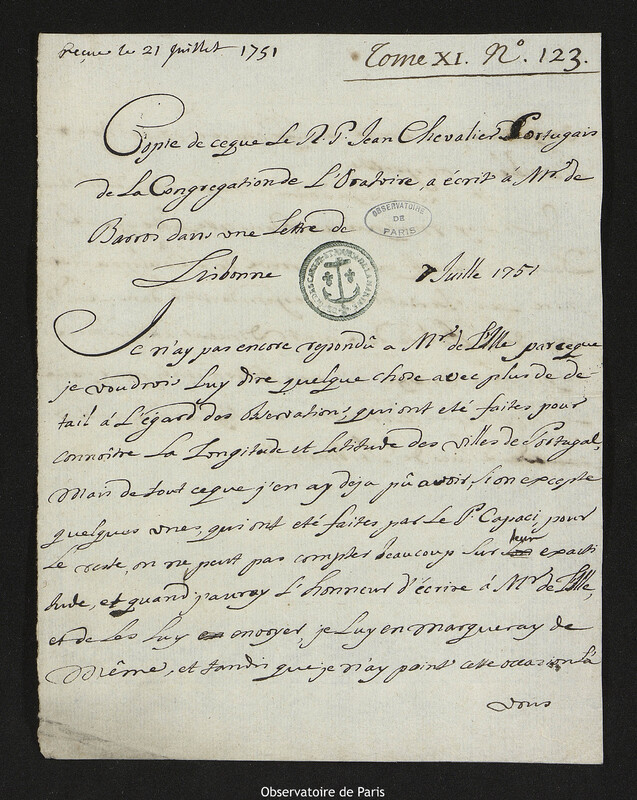 reçue le 21 Juillet 1751
Tome XI. N°. 123.
Copie de ceque Le R. P. Jean Chevalier Portugais
de La Congregation de L'Oratoire, a écrit à Mr. de
Barros dans une Lettre de
OBSERVATOIRE
DE
PARIS
Lisbonne 7 Juille 1751
Je n'ay pas encore repondû a Mr. de L'Isle parceque
je voudrois Luy dire quelque chose avec plus de de
tail à L'égard des Observations, qui ont eté faites pour
connoître La Longitude et Latitude des villes de Portugal,
Mais de tout ceque j'en ay deja pû avoir, si on excepte
quelques unes, qui ont eté faites par Le P. Capaci, pour
Le reste, on ne peut pas compter beaucoup sur leur exacti
tude, et quand j'auray L'honneur d'écrire à Mr. de L'Isle,
et de Les Luy envoyer, je Luy en marqueray de
Même, et tandis que je n'ay point cette occasion là
vous
Observatoire de Paris